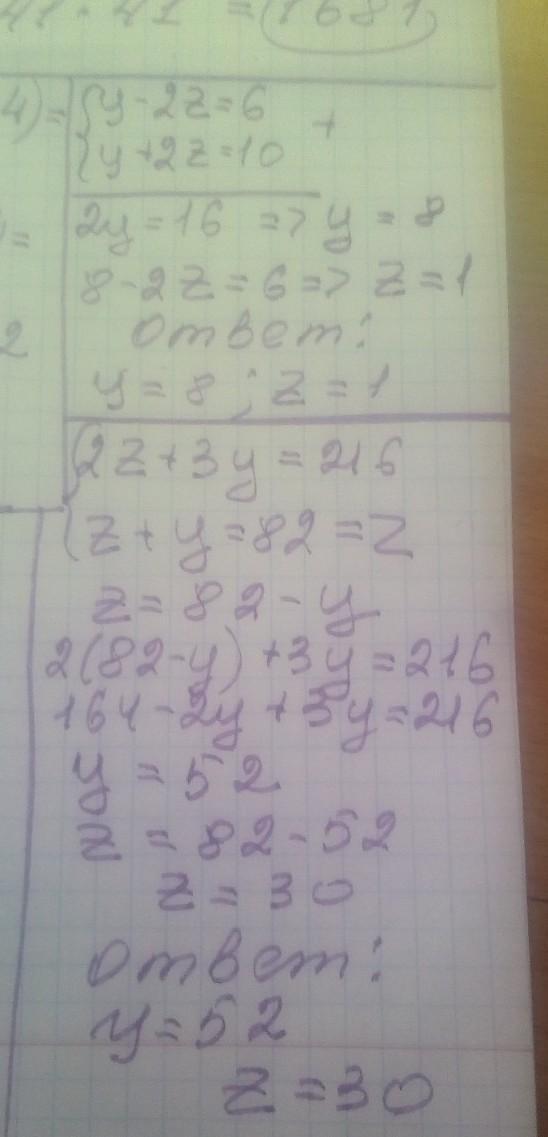 41 · 41 = 1681
4) = { y - 2z = 6
{ y + 2z = 10 +
2y = 16 => y = 8
=
8 - 2z = 6 => z = 1
2
ответ:
y = 8 ; z = 1
{ 2z + 3y = 216
{ z + y = 82 = z
z = 82 - y
2(82 - y) + 3y = 216
164 - 2y + 3y = 216
y = 52
z = 82 - 52
z = 30
ответ:
y = 52
z = 30